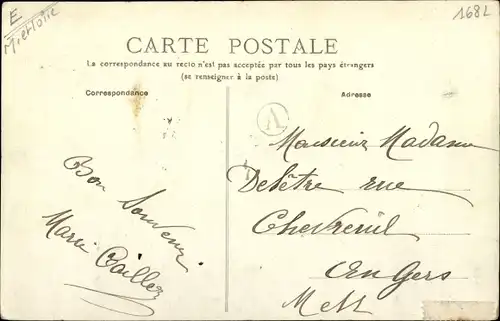 E
M et Loire
1682
CARTE POSTALE
La correspondance au recto n'est pas acceptée par tous les pays étrangers
(se renseigner à la poste)
Correspondance
Adresse
A
Bon Souvenir
Marie
Monsieur Madame
Delêtre rue
Chevreuil
Angers
M et L